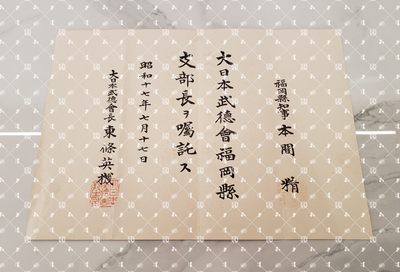 福岡縣知事 本間 精
大日本武德會福岡縣
支部長ヲ囑託ス
昭和十七年七月十七日
大日本武德會長 東條英機